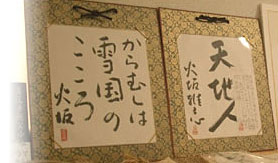 からむしは
雪国の
こころ
火坂
天地人
火坂雅志